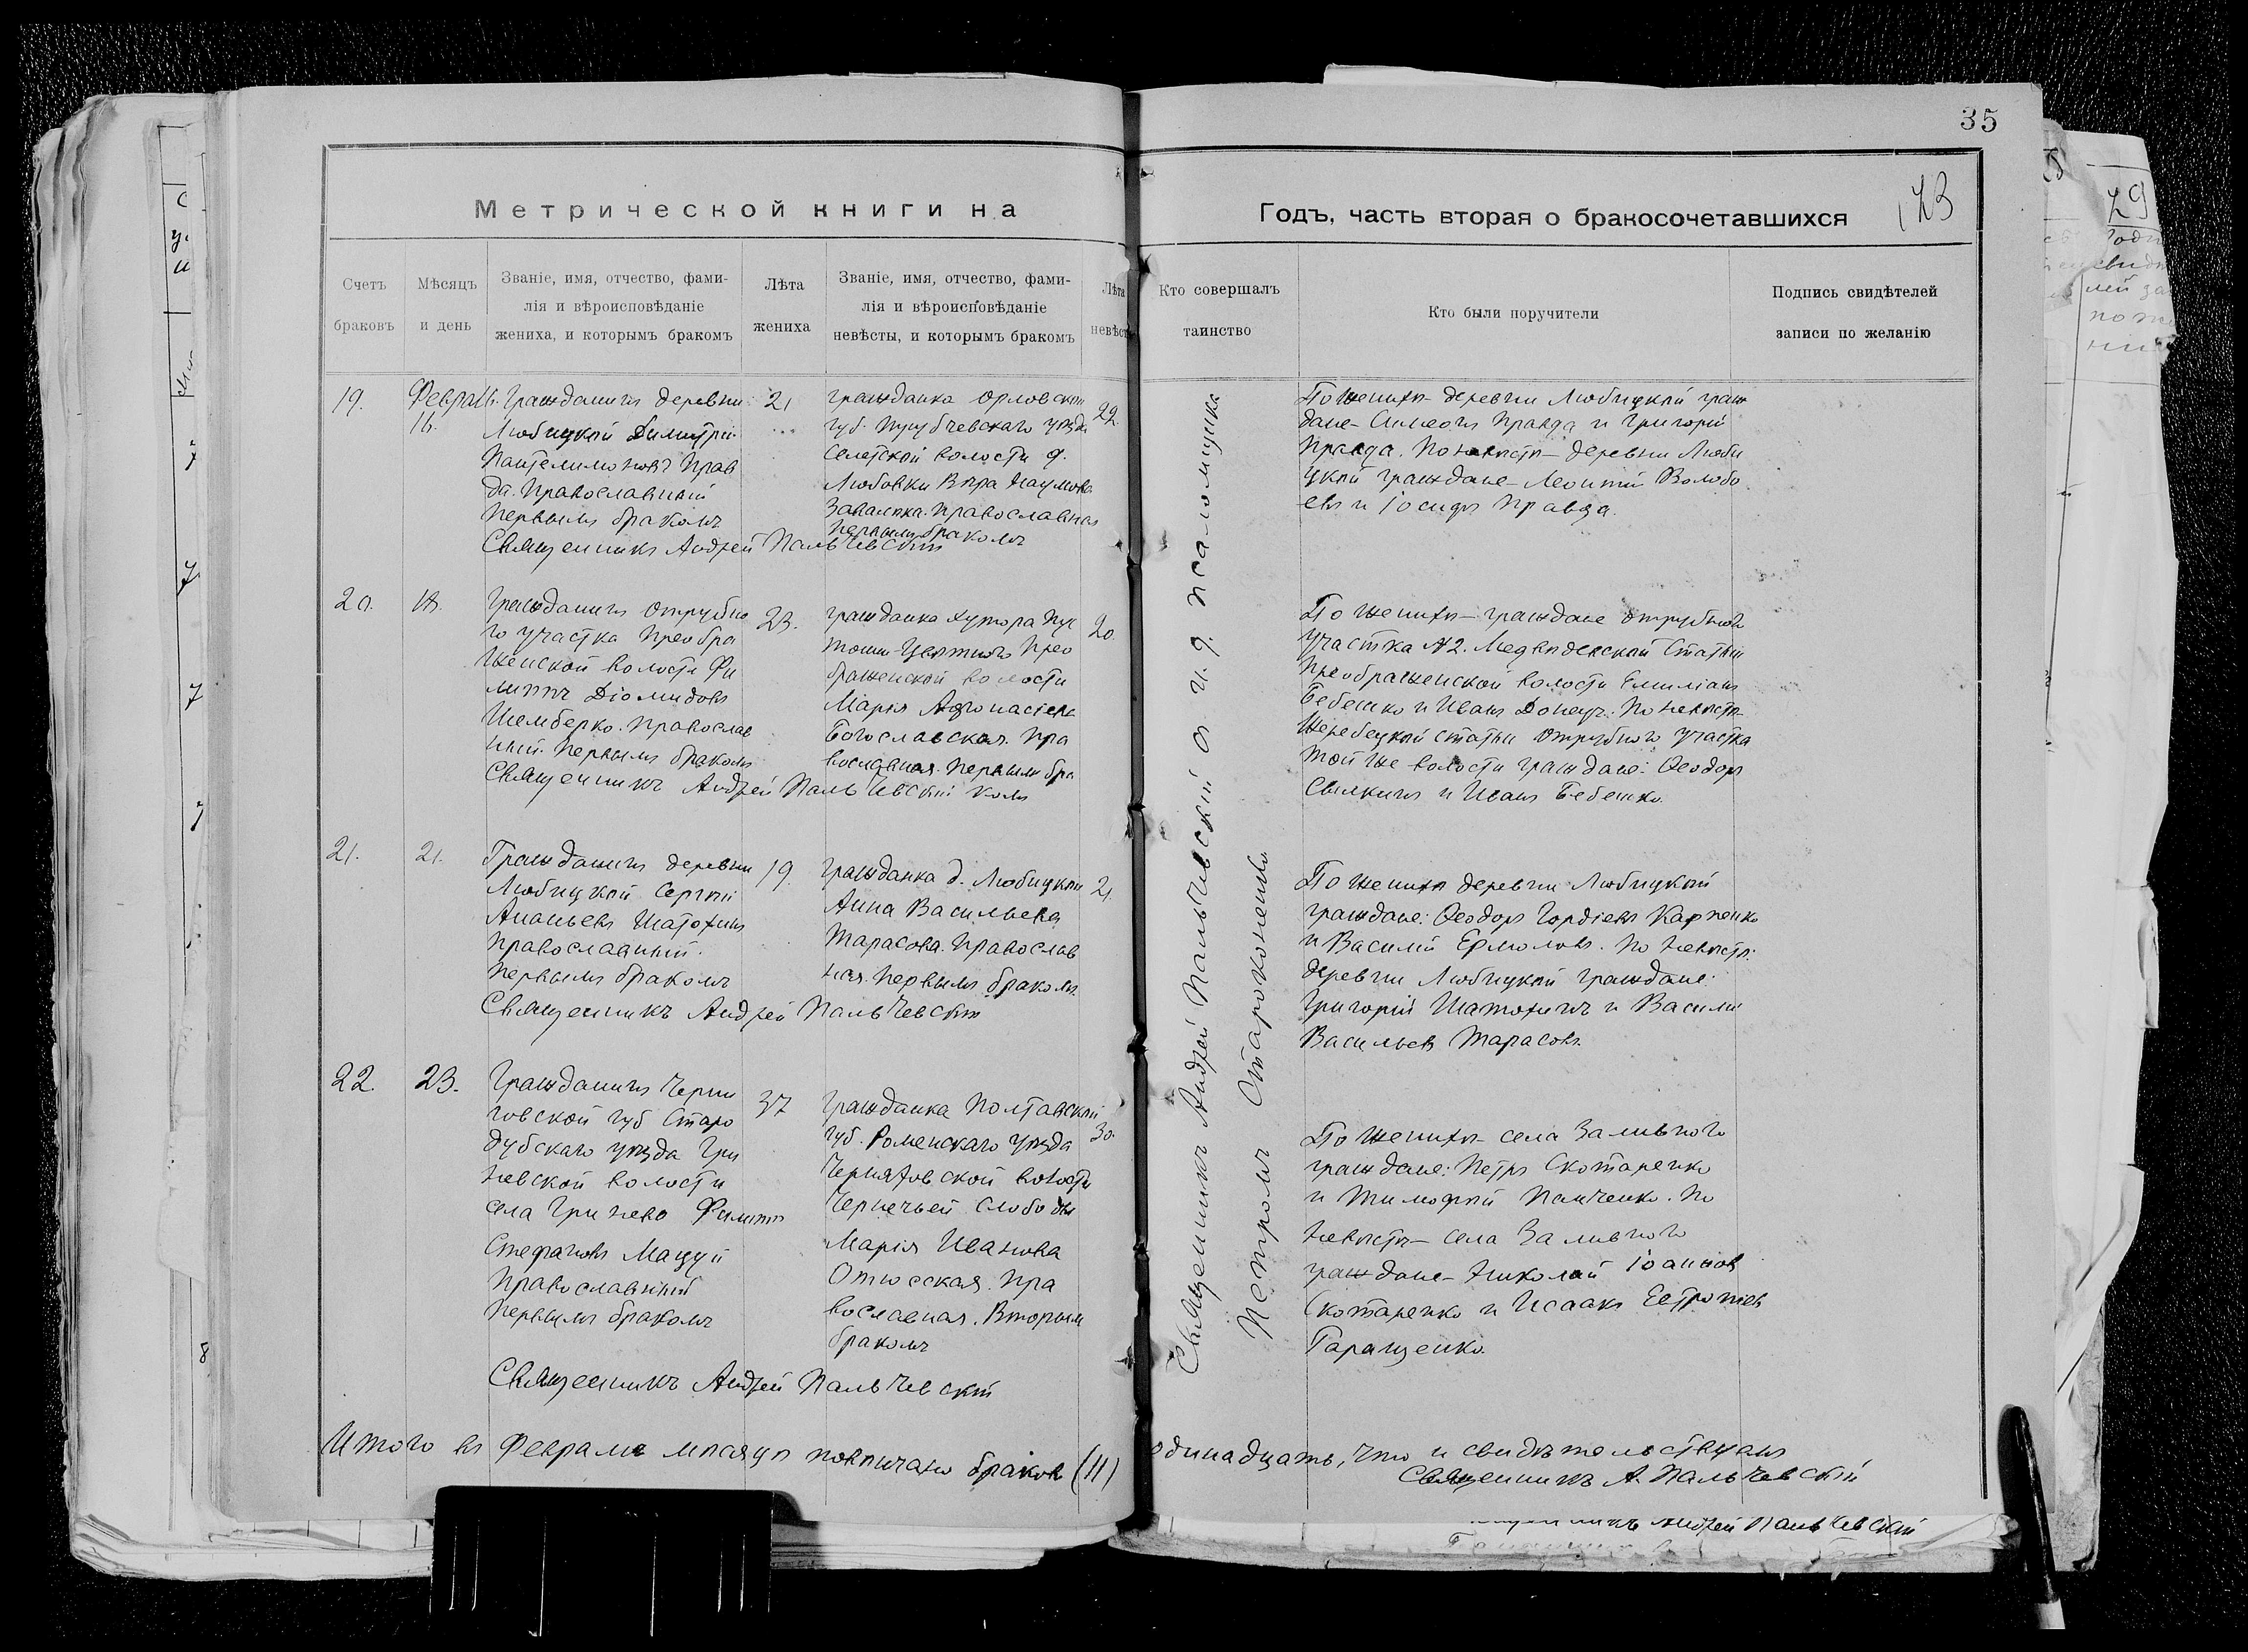 35
Метрической книги на
Годъ, часть вторая о бракосочетавшихся
Счетъ браковъ
Мѣсяцъ и день
Званіе, имя, отчество, фами-
лія и вѣроисповѣданіе
жениха, и которымъ бракомъ
Лѣта жениха
Званіе, имя, отчество, фами-
лія и вѣроисповѣданіе
невѣсты, и которымъ бракомъ
Лѣта
Кто совершалъ
таинство
Кто были поручители
Подпись свидѣтелей
записи по желанію
19.
16.
Гражданинъ деревни
Любицкой Димитрій
Пантелимоновъ Прав
да. Православный
первымъ бракомъ
21
гражданка Орловской
губ. Трубчевскаго уѣзда
Селетской волости д.
Любовки Вѣра Наумова
православная
первымъ бракомъ
22.
Священникъ Андрей Пальчевскій
По женихѣ деревни Любицкой граж
дане Симеонъ Правда и Григорій
Правда. По невѣстѣ деревни Люби
цкой граждане Леонтій Волобо
евъ и Іосифъ Правда.
20.
18.
Гражданинъ отрубно
го участка Преобра
женской волости Фи
липпъ Діомидовъ
Шемберко. Православ
ный. Первымъ бракомъ
23.
гражданка хутора Пус
Прео
браженской волости
Марія
Богославская. Пра
вославная. Первымъ бра
комъ
20.
Священникъ Андрей Пальчевскій
По женихѣ – граждане отрубного
участка №2. Медведевской Статьи
Преображенской волости Емиліанъ
Бебешко и Иванъ Донецъ. По невѣстѣ
Жеребецкой статьи отрубного участка
той же волости граждане: Ѳеодоръ
Свилкинъ и Иванъ Бебешко.
21.
21.
Гражданинъ деревни
Любицкой Сергѣй
Ананьевъ Шатохинъ
православный.
первымъ бракомъ
19.
гражданка д. Любицкой
Анна Васильева
Тарасова. Православ
ная. Первымъ бракомъ.
21.
Священникъ Андрей Пальчевскій
По женихѣ деревни Любицкой
граждане: Ѳеодоръ Гордіевъ Карпенко
и Василій Ермоловъ. По невѣстѣ:
деревни Любицкой граждане:
Григорій Шатохинъ и Василій
Васильевъ Тарасовъ.
22.
23.
Гражданинъ Черни
говской губ Старо
дубскаго уѣзда Гри
невской волости
села Гринево Филиппъ
Стефановъ Мацуй
Православный
первымъ бракомъ
37
гражданка Полтавской
губ. Роменскаго уѣзда
волости
Чернечьей Слободы
Марія Иванова
Отюсская. Пра
вославная. Вторымъ
бракомъ
30.
Священникъ Андрей Пальчевскій
По женихѣ – села Заливного
граждане: Петръ Скотаренко
и Тимофѣй Панченко. По
невѣстѣ – села Заливного
граждане – Николай Іоаннов
Скотаренко и Исаакъ Евтропіев
Таращенко.
Священникъ Андрей Пальчевскій съ и. д. псаломщика
Петромъ Староконенко
Итого въ Февралѣ мѣсяцѣ повѣнчано браковъ (11) одинадцать, что и свидѣтельствуютъ
Священникъ А. Пальчевскій
Андрей Пальчевскій